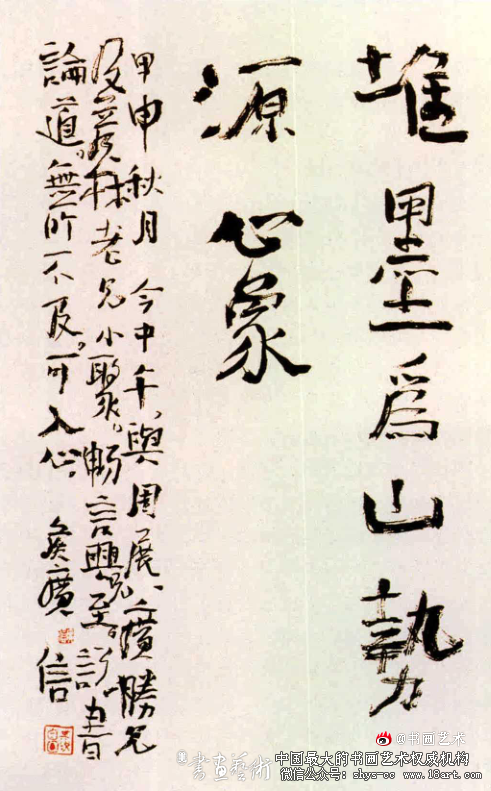 堆墨爲山勢
源心象
甲申秋月 今中午、與周展、廣勝兄
及彥林老兄小聚。暢言興至。書
論道。無所不及。可入心。侯廣信
@书画艺术
書画藝術
中国最大的书画艺术权威机构
微信公众号: shys-cc www.18art.com